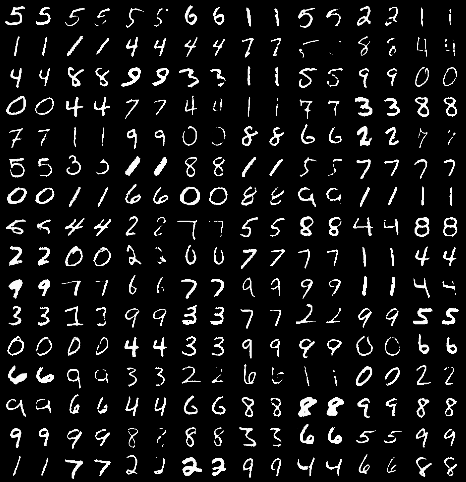 5 5 5 5 5 5 6 6 1 1 5 5 2 2 1 1
1 1 1 1 4 4 4 4 7 7 5 5 8 8 4 4
4 4 8 8 9 9 3 3 1 1 5 5 9 9 0 0
0 0 4 4 7 7 4 4 1 1 7 7 3 3 8 8
7 7 1 1 9 9 0 0 8 8 6 6 2 2 7 7
5 5 3 3 1 1 8 8 1 1 5 5 7 7 7 7
0 0 1 1 6 6 0 0 8 8 9 9 1 1 1 1
5 5 4 4 2 2 7 7 5 5 8 8 4 4 8 8
2 2 0 0 2 2 0 0 7 7 7 7 1 1 4 4
9 9 7 7 6 6 7 7 9 9 9 9 1 1 4 4
3 3 3 3 9 9 3 3 7 7 2 2 9 9 5 5
0 0 0 0 4 4 3 3 9 9 9 9 0 0 6 6
6 6 9 9 3 3 2 2 6 6 1 1 0 0 2 2
9 9 6 6 4 4 6 6 8 8 8 8 9 9 8 8
9 9 9 9 8 8 8 8 3 3 6 6 5 5 9 9
1 1 7 7 2 2 2 2 9 9 4 4 6 6 8 8